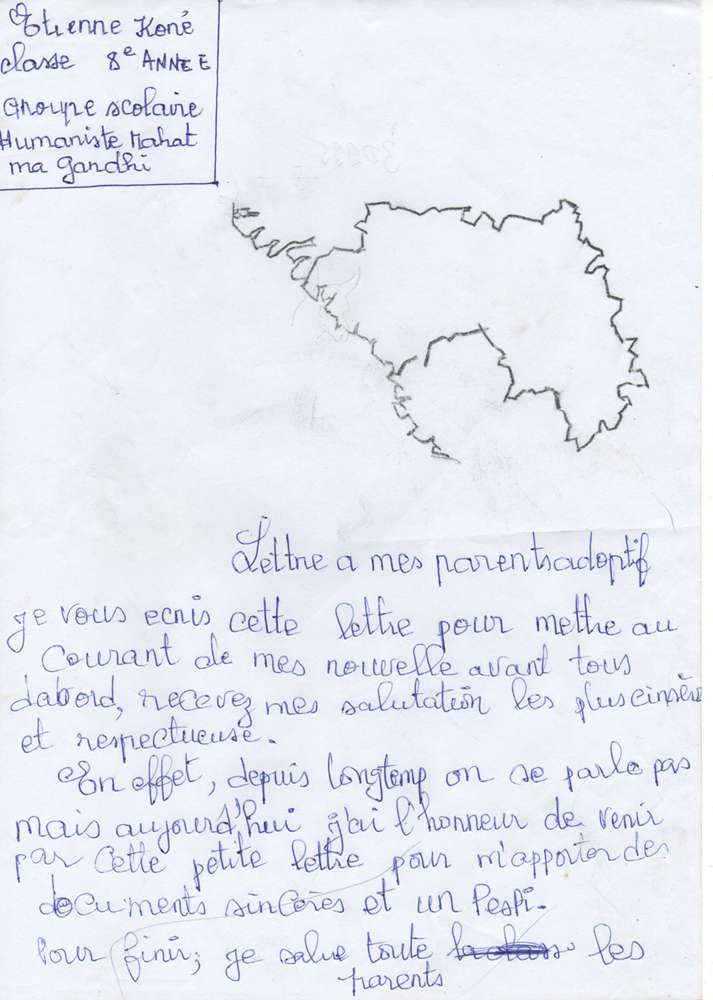 Etienne Koné
classe 8e ANNEE
Groupe scolaire
Humaniste Mahat
ma Gandhi
Lettre a mes parents adoptif
je vous ecris cette lettre pour metre au
Courant de mes nouvelle avant tous
d'abord, recevez mes salutation les plus cinsère
et respectueuse.
En effet, depuis longtemp on se parle pas
mais aujourd'hui j'ai l'honneur de venir
par cette petite lettre pour m'apporter des
documents sincères et un
Pour finir; je salue toute les
parents